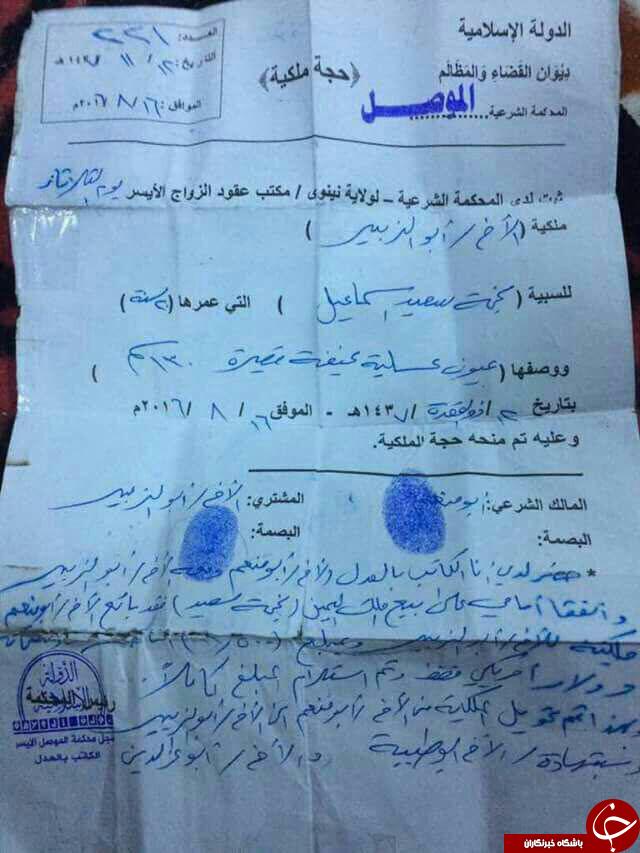 الدولة الإسلامية
ديوان القضاء والمظالم
المحكمة الشرعية الموصل
﴿حجة ملكية﴾
العدد: ٢٣١
التاريخ: ١٢/ ١١ / ١٤٣٧هـ
الموافق: ١٦/ ٨ / ٢٠١٦م
ثبت لدى المحكمة الشرعية – لولاية نينوى / مكتب عقود الزواج الأيسر يوم
ملكية (الأخ / أبو الزبير)
للسبية (نجمة سعيد اسماعيل) التي عمرها (٢٠ سنة)
ووصفها (عيون عسلية ضعيفة قصيرة ١٣٠سم)
بتاريخ ١٢/ ذو القعدة / ١٤٣٧هـ - الموفق ١٦ / ٨ / ٢٠١٦م
وعليه تم منحه حجة الملكية.
المالك الشرعي: أبو منعم المشتري: الأخ / أبو الزبير
البصمة: البصمة:
* حضر لدي أنا الكاتب بالعدل الأخ / أبو منعم ومعه أخ / أبو الزبير
واتفقا أمامي على بيع ملك اليمين (نجمة سعيد) فقد باع الأخ / أبو منعم
ملكيته للأخ / أبو الزبير وبمبلغ
دولار أمريكي فقط وتم استلام المبلغ كاملاً.
وبهذا تم تحويل الملكية من الأخ / أبو منعم الى الأخ / أبو الزبير
بشهادة / الأخ والأخ / أبو عز الدين
الدولة الإسلامية
سجل محكمة الموصل الأيسر
الكاتب بالعدل
باشگاه خبرنگاران